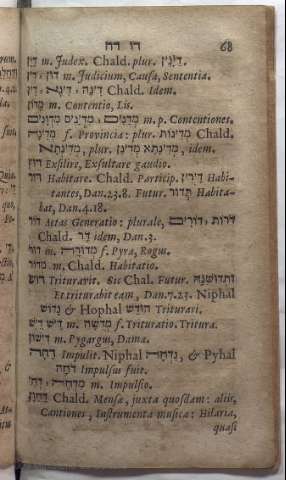 דו דח 68
דַּיָּן m. Judex. Chald. plur. דַּיָּנִין.
דִּין‎, דּוּן m. Judicium, Causa, Sententia.
דִּין‎, דִּינָא‎, דִּינָה Chald. Idem.
מָדוֹן m. Contentio, Lis.
מִדְיָנִים‎, מְדָנִים m. p. Contentiones.
מְדִינָה f. Provincia: plur. מְדִינוֹת Chald.
מְדִינְתָּא, plur. idem.
דּוּץ Exsilire, Exsultare gaudio.
דּוּר Habitare. Chald. Particip. Habi-
tantes, Dan.23.8. Futur. תְּדוּר Habita-
bat, Dan.4.18.
דּוֹר Aetas Generatio: plurale, דּוֹרִים, דּוֹרוֹת
Chald. דָּר idem, Dan.3.
דּוּר m. מְדוּרָה f. Pyra, Rogus.
מְדוֹר m. Chald. Habitatio.
דּוּשׁ Trituravit. Sic Chal. Futur. וּתְדוּשִׁנַּהּ
Et triturabit eam, Dan.7.23. Niphal
נָדוֹשׁ & Hophal הוּדַשׁ Triturari.
דַּיִשׁ m. מְדֻשָׁה f. Trituratio. Tritura.
דִּישׁוֹן m. Pygargus, Dama.
דָּחָה Impulit. Niphal נִדְחָה, & Pyhal
דֹּחָה Impulsus fuit.
דְּחִי‎, מִדְחֶה m. Impulsio.
דַּחֲוָן Chald. Mensae, juxta quosdam: aliis,
Cantiones, Instrumenta musica: Hilaria,
quasi